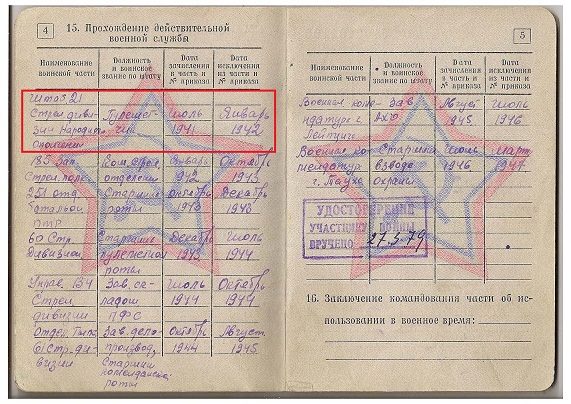 4
15. Прохождение действительной
военной службы
Наименование
воинской части
Должность
и воинское
звание по штату
Дата
зачисления
в часть и
№ приказа
Дата
исключения
из части и
№ приказа
Штаб 21
Стрел. диви- Пулемет- Июль Январь
зии Народного чик 1941 1942
ополчения
185 Зап. Ком. стрел. Январь Октябрь
Стрел. полк отделения 1942 1943
251 отд. Старшина октябрь Декабрь
батальон роты 1943 1943
ПТР
60 Стр. Старшина Декабрь Июль
Дивизион пулеметной 1943 1944
роты
Управ. 134 Зав. ск- Июль Октябрь
Стрел. ладом 1944 1944
дивизии ПФС
Отдел. Тыла Зав. дело- Октябрь Август
61 Стр. ди- производ. 1944 1945
визии Старшина
комендантской
роты
5
Наименование
воинской части
Должность
и воинское
звание по штату
Дата
зачисления
в часть и
№ приказа
Дата
исключения
из части и
№ приказа
Военная коме- Зав. Август Июль
ндатура г. АХО 1945 1946
Военная ко- Старшина Июль Март
мендатура взвода 1946 1947
г. Тауха охраны
УДОСТОВЕРЕНИЕ
УЧАСТНИКА ВОЙНЫ
ВРУЧЕНО 27.3.79
16. Заключение командования части об ис-
пользовании в военное время: